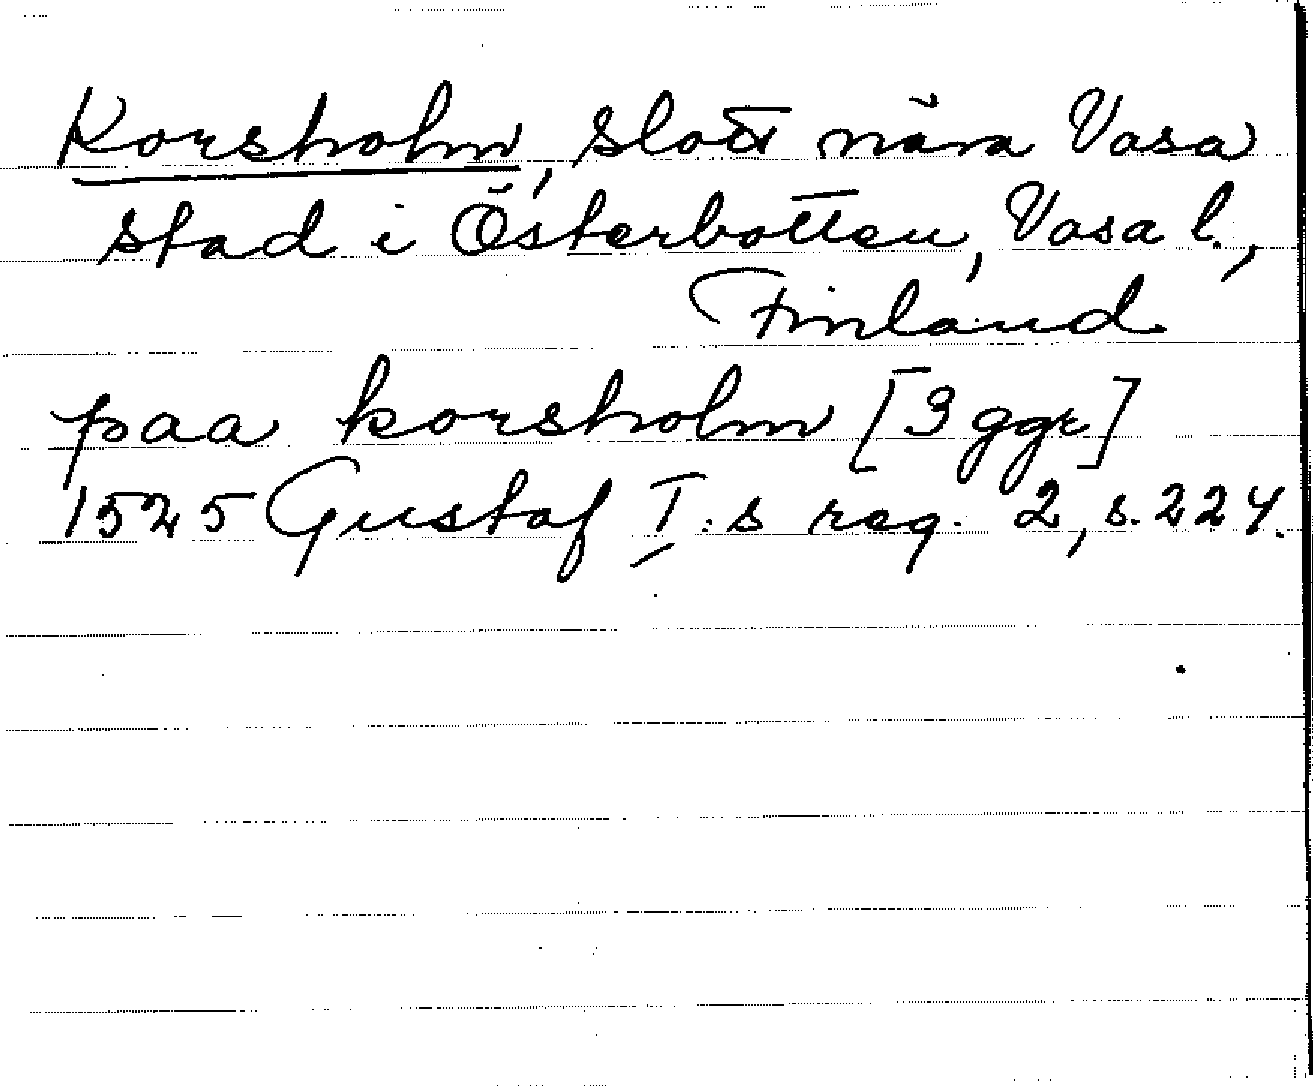 Korsholm, slott nära Vasa
stad i Österbotten, Vasa l.,
Finland
paa korsholm [3 ggr]
1525 Gustaf I:s reg. 2, s. 224.